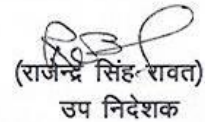 (राजेन्द्र सिंह रावत)
उप निदेशक